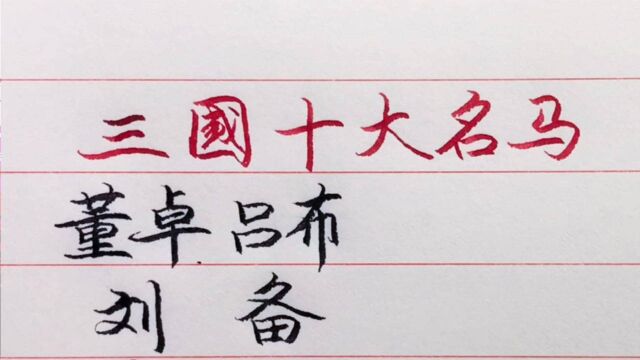 三國十大名马
董卓 吕布
刘备